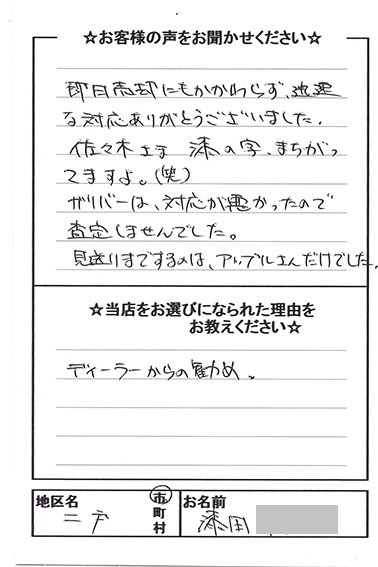 ☆お客様の声をお聞かせください☆
即日売却にもかかわらず、迅速
な対応ありがとうございました。
佐々木さま 漆の字、まちがっ
てますよ。(笑)
ガリバーは、対応が悪かったので
査定しませんでした。
見送りまでするのは、アップルさんだけでした。
☆当店をお選びになられた理由を
お教えください☆
ディーラーからの勧め。
地区名
二戸
市
町
村
お名前
漆田